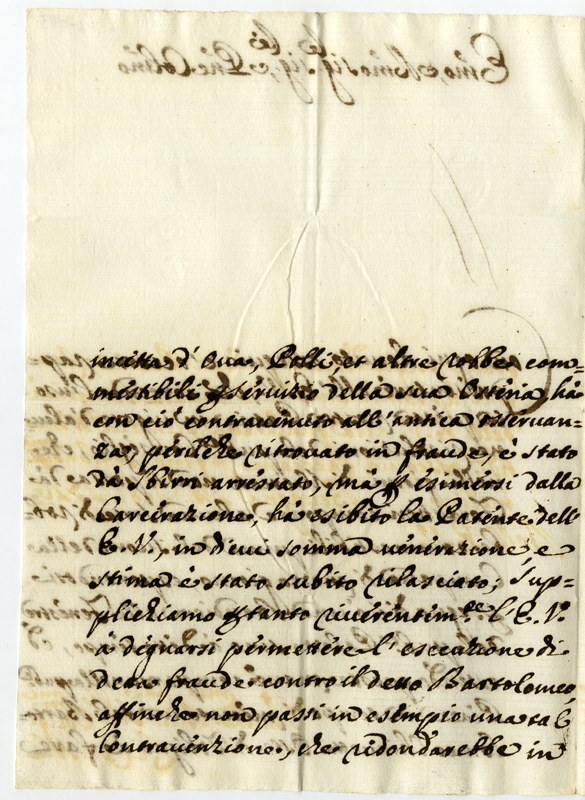 incetta d' Ova, Polli, et altre robbe com=
mestibili p servizio della sua Osteria, hà
con ciò contravenuto all' antica osservan=
za, perilche ritrovato in fraude, è stato
dà Sbirri arrestato, mà p esimersi dalla
Carcerazione, hà esibito la Patente dell'
E. V., in di cui somma venerazione, e
stima è stato subito rilasciato; Sup=
plichiamo p tanto riverentim.te l' E. V.
à degnarsi permettere l' esecuzione di
detta fraude contro il detto Bartolomeo,
affinche non passi in esempio una tal
Contravenzione, che ridondarebbe in